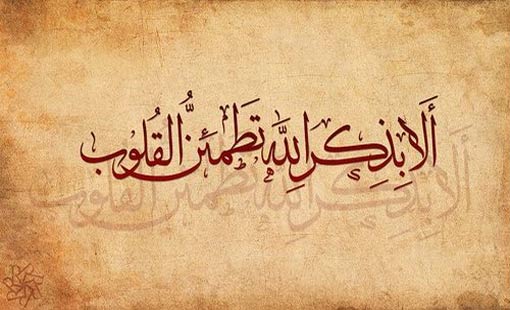 أَلَا بِذِكْرِ اللَّهِ تَطْمَئِنُّ الْقُلُوبُ
أَلَا بِذِكْرِ اللَّهِ تَطْمَئِنُّ الْقُلُوبُ